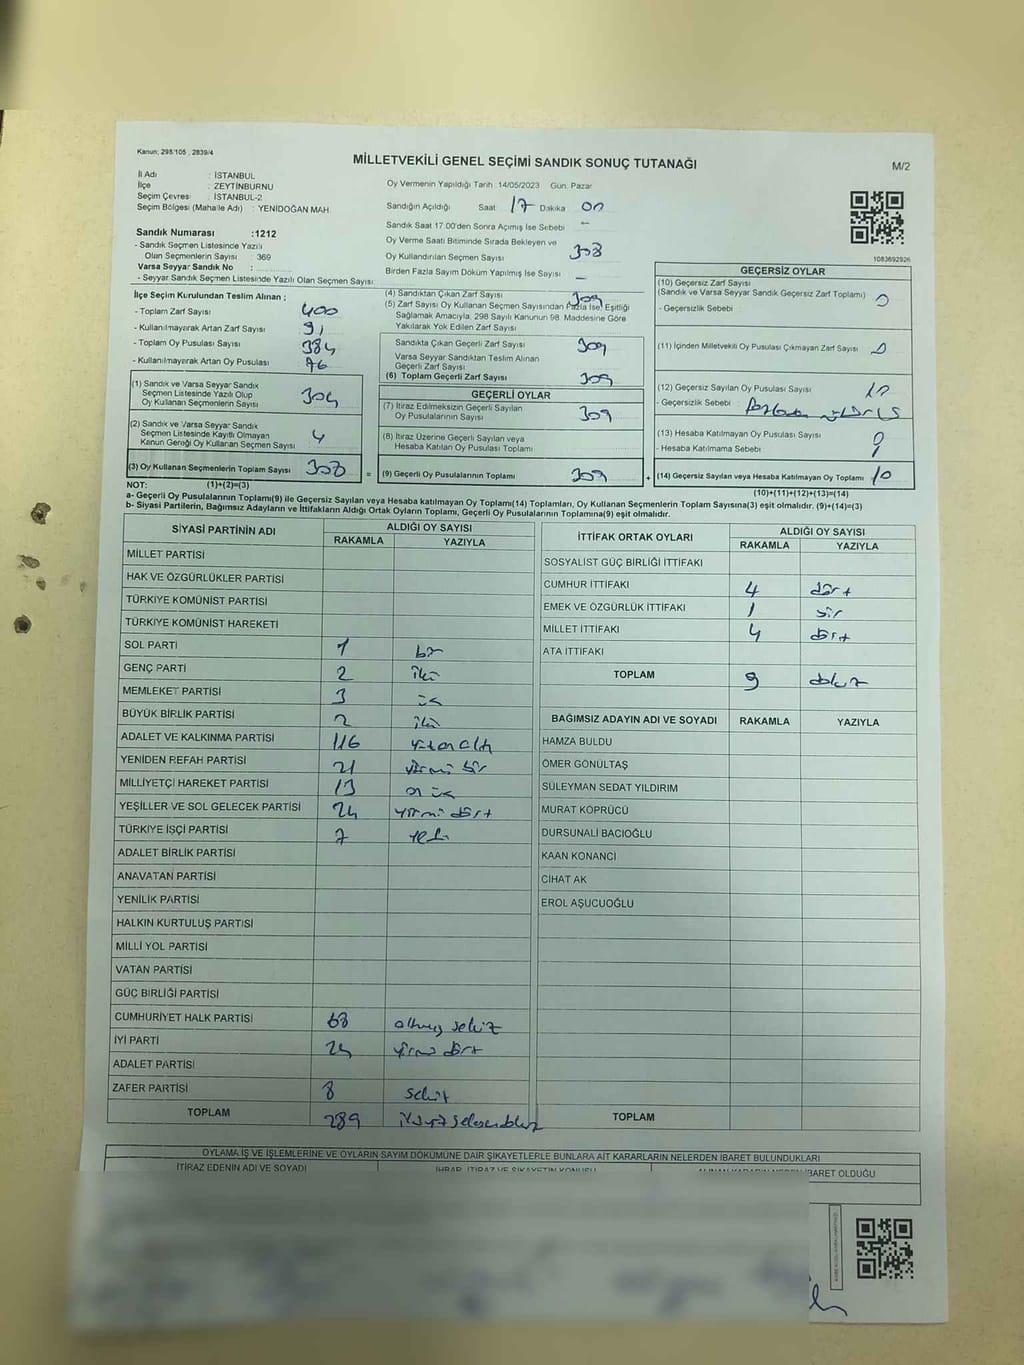 Kanun; 298/105 , 2839/4
MİLLETVEKİLİ GENEL SEÇİMİ SANDIK SONUÇ TUTANAĞI
M/2
İl Adı : İSTANBUL
İlçe : ZEYTİNBURNU
Seçim Çevresi : İSTANBUL-2
Seçim Bölgesi (Mahalle Adı) : YENİDOĞAN MAH.
Sandık Numarası :1212
- Sandık Seçmen Listesinde Yazılı
Olan Seçmenlerin Sayısı : 369
Varsa Seyyar Sandık No :
- Seyyar Sandık Seçmen Listesinde Yazılı Olan Seçmen Sayısı:
Oy Vermenin Yapıldığı Tarih :14/05/2023 Gün: Pazar
Sandığın Açıldığı Saat 17 Dakika 00
Sandık Saat 17:00'den Sonra Açılmış İse Sebebi -
Oy Verme Saati Bitiminde Sırada Bekleyen ve
Oy Kullandırılan Seçmen Sayısı 308
Birden Fazla Sayım Döküm Yapılmış İse Sayısı -
1083692926
İlçe Seçim Kurulundan Teslim Alınan ;
- Toplam Zarf Sayısı 400
- Kullanılmayarak Artan Zarf Sayısı 91
- Toplam Oy Pusulası Sayısı 384
- Kullanılmayarak Artan Oy Pusulası 76
(1) Sandık ve Varsa Seyyar Sandık
Seçmen Listesinde Yazılı Olup
Oy Kullanan Seçmenlerin Sayısı 304
(2) Sandık ve Varsa Seyyar Sandık
Seçmen Listesinde Kayıtlı Olmayan
Kanun Gereği Oy Kullanan Seçmen Sayısı 4
(3) Oy Kullanan Seçmenlerin Toplam Sayısı 308 =
(4) Sandıktan Çıkan Zarf Sayısı 309
(5) Zarf Sayısı Oy Kullanan Seçmen Sayısından Fazla İse, Eşitliği
Sağlamak Amacıyla, 298 Sayılı Kanunun 98. Maddesine Göre
Yakılarak Yok Edilen Zarf Sayısı
Sandıkta Çıkan Geçerli Zarf Sayısı 309
Varsa Seyyar Sandıktan Teslim Alınan
Geçerli Zarf Sayısı
(6) Toplam Geçerli Zarf Sayısı 309
GEÇERLİ OYLAR
(7) İtiraz Edilmeksizin Geçerli Sayılan
Oy Pusulalarının Sayısı 309
(8) İtiraz Üzerine Geçerli Sayılan veya
Hesaba Katılan Oy Pusulaları Toplamı
(9) Geçerli Oy Pusulalarının Toplamı 309 +
GEÇERSİZ OYLAR
(10) Geçersiz Zarf Sayısı
(Sandık ve Varsa Seyyar Sandık Geçersiz Zarf Toplamı) 0
- Geçersizlik Sebebi
(11) İçinden Milletvekili Oy Pusulası Çıkmayan Zarf Sayısı 0
(12) Geçersiz Sayılan Oy Pusulası Sayısı 10
- Geçersizlik Sebebi
(13) Hesaba Katılmayan Oy Pusulası Sayısı 0
- Hesaba Katılmama Sebebi
(14) Geçersiz Sayılan veya Hesaba Katılmayan Oy Toplamı 10
NOT: (1)+(2)=(3)
(10)+(11)+(12)+(13)=(14)
a- Geçerli Oy Pusulalarının Toplamı(9) ile Geçersiz Sayılan veya Hesaba katılmayan Oy Toplamı(14) Toplamları, Oy Kullanan Seçmenlerin Toplam Sayısına(3) eşit olmalıdır. (9)+(14)=(3)
b- Siyasi Partilerin, Bağımsız Adayların ve İttifakların Aldığı Ortak Oyların Toplamı, Geçerli Oy Pusulalarının Toplamına(9) eşit olmalıdır.
SİYASİ PARTİNİN ADI ALDIĞI OY SAYISI
RAKAMLA YAZIYLA
MİLLET PARTİSİ
HAK VE ÖZGÜRLÜKLER PARTİSİ
TÜRKİYE KOMÜNİST PARTİSİ
TÜRKİYE KOMÜNİST HAREKETİ
SOL PARTİ 1 bir
GENÇ PARTİ 2 iki
MEMLEKET PARTİSİ 3 üç
BÜYÜK BİRLİK PARTİSİ 2 iki
ADALET VE KALKINMA PARTİSİ 116 yüzonaltı
YENİDEN REFAH PARTİSİ 21 yirmi bir
MİLLİYETÇİ HAREKET PARTİSİ 13 on üç
YEŞİLLER VE SOL GELECEK PARTİSİ 24 yirmi dört
TÜRKİYE İŞÇİ PARTİSİ 7 yedi
ADALET BİRLİK PARTİSİ
ANAVATAN PARTİSİ
YENİLİK PARTİSİ
HALKIN KURTULUŞ PARTİSİ
MİLLİ YOL PARTİSİ
VATAN PARTİSİ
GÜÇ BİRLİĞİ PARTİSİ
CUMHURİYET HALK PARTİSİ 68 altmış sekiz
İYİ PARTİ 24 yirmi dört
ADALET PARTİSİ
ZAFER PARTİSİ 8 sekiz
TOPLAM 289 ikiyüz seksendokuz
İTTİFAK ORTAK OYLARI ALDIĞI OY SAYISI
RAKAMLA YAZIYLA
SOSYALİST GÜÇ BİRLİĞİ İTTİFAKI
CUMHUR İTTİFAKI 4 dört
EMEK VE ÖZGÜRLÜK İTTİFAKI 1 bir
MİLLET İTTİFAKI 4 dört
ATA İTTİFAKI
TOPLAM 9 dokuz
BAĞIMSIZ ADAYIN ADI VE SOYADI RAKAMLA YAZIYLA
HAMZA BULDU
ÖMER GÖNÜLTAŞ
SÜLEYMAN SEDAT YILDIRIM
MURAT KÖPRÜCÜ
DURSUNALİ BACIOĞLU
KAAN KONANCİ
CİHAT AK
EROL AŞUCUOĞLU
TOPLAM
OYLAMA İŞ VE İŞLEMLERİNE VE OYLARIN SAYIM DÖKÜMÜNE DAİR ŞİKAYETLERLE BUNLARA AİT KARARLARIN NELERDEN İBARET BULUNDUKLARI
İTİRAZ EDENİN ADI VE SOYADI İHBAR, İTİRAZ VE ŞİKAYETİN KONUSU İBARET OLDUĞU